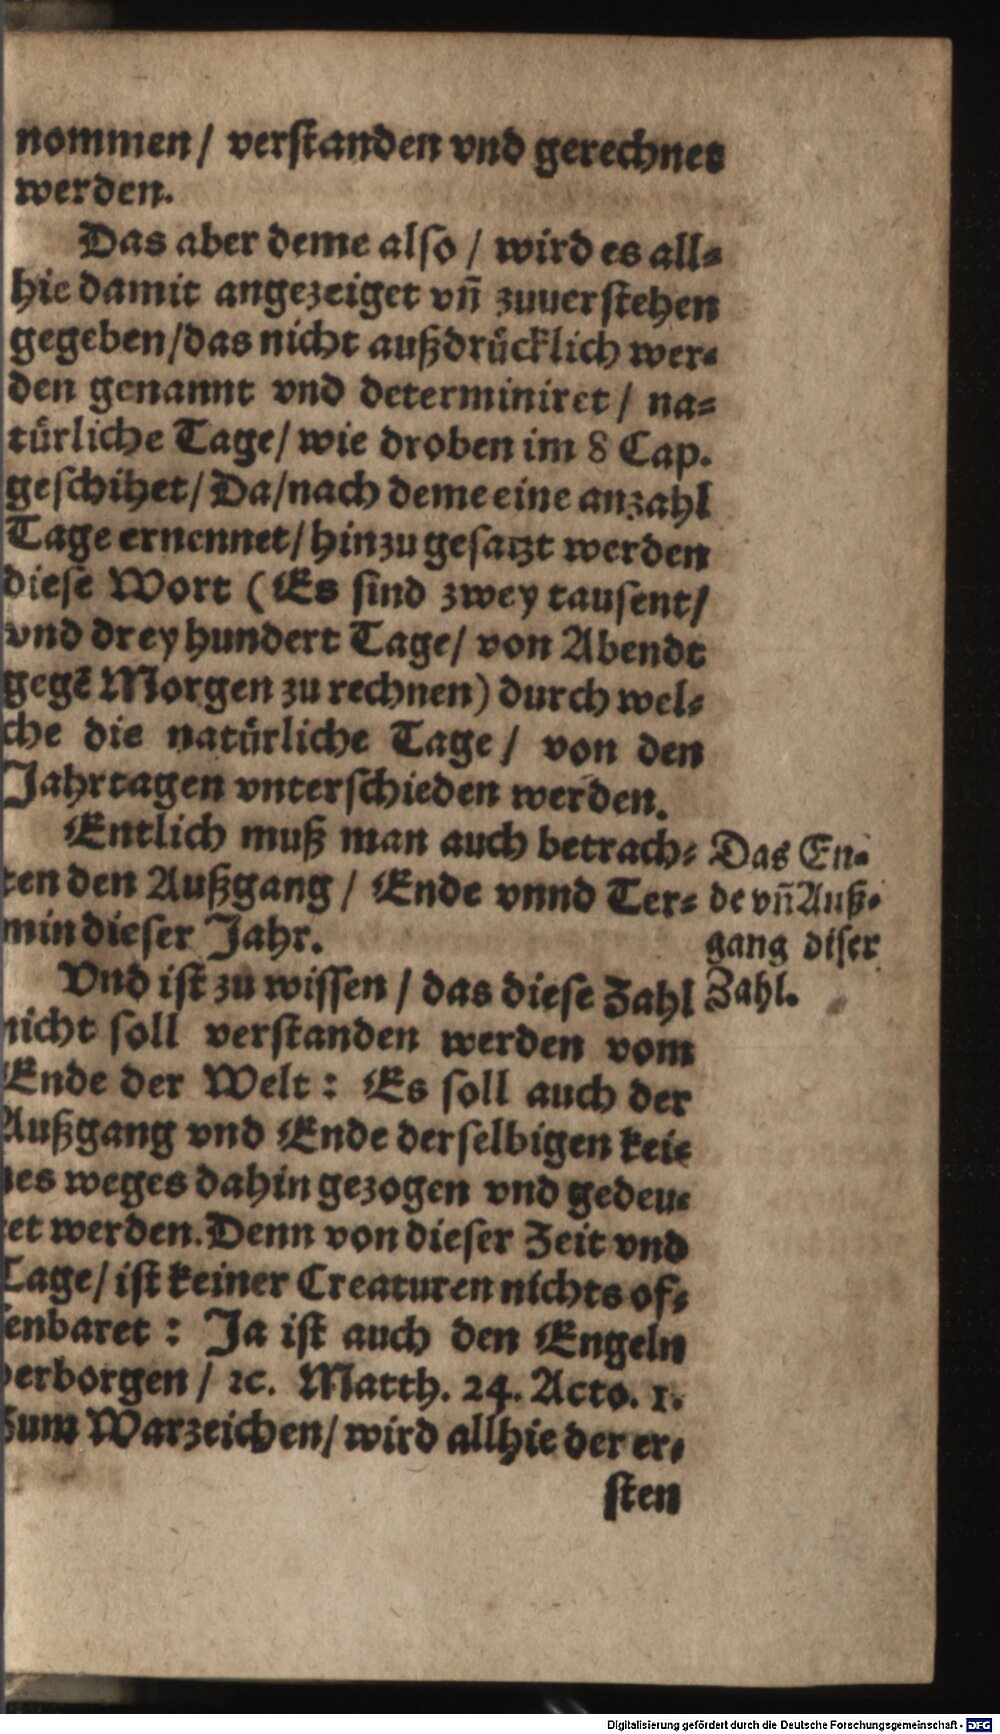 nommen / verstanden vnd gerechnet
werden.
Das aber deme also / wird es all-
hie damit angezeiget vñ zuuerstehen
gegeben / das nicht außdrücklich wer-
den genannt vnd determiniret / na-
türliche Tage / wie droben im 8 Cap.
geschihet / Da / nach deme eine anzahl
Tage ernennet / hinzu gesatzt werden
diese Wort (Es sind zwey tausent /
vnd drey hundert Tage / von Abendt
gegē Morgen zu rechnen) durch wel-
che die natürliche Tage / von den
Jahrtagen vnterschieden werden.
Entlich muß man auch betrach-
ten den Außgang / Ende vnnd Ter-
min dieser Jahr.
Das En-
de vñ Auß-
gang diser
Zahl.
Vnd ist zu wissen / das diese Zahl
nicht soll verstanden werden vom
Ende der Welt : Es soll auch der
Außgang vnd Ende derselbigen kei-
nes weges dahin gezogen vnd gedeu-
tet werden. Denn von dieser Zeit vnd
Tage / ist keiner Creaturen nichts of-
fenbaret : Ja ist auch den Engeln
verborgen / ꝛc. Matth. 24. Acto. 1.
Zum Warzeichen / wird allhie der er-
sten
Digitalisierung gefördert durch die Deutsche Forschungsgemeinschaft - DFG